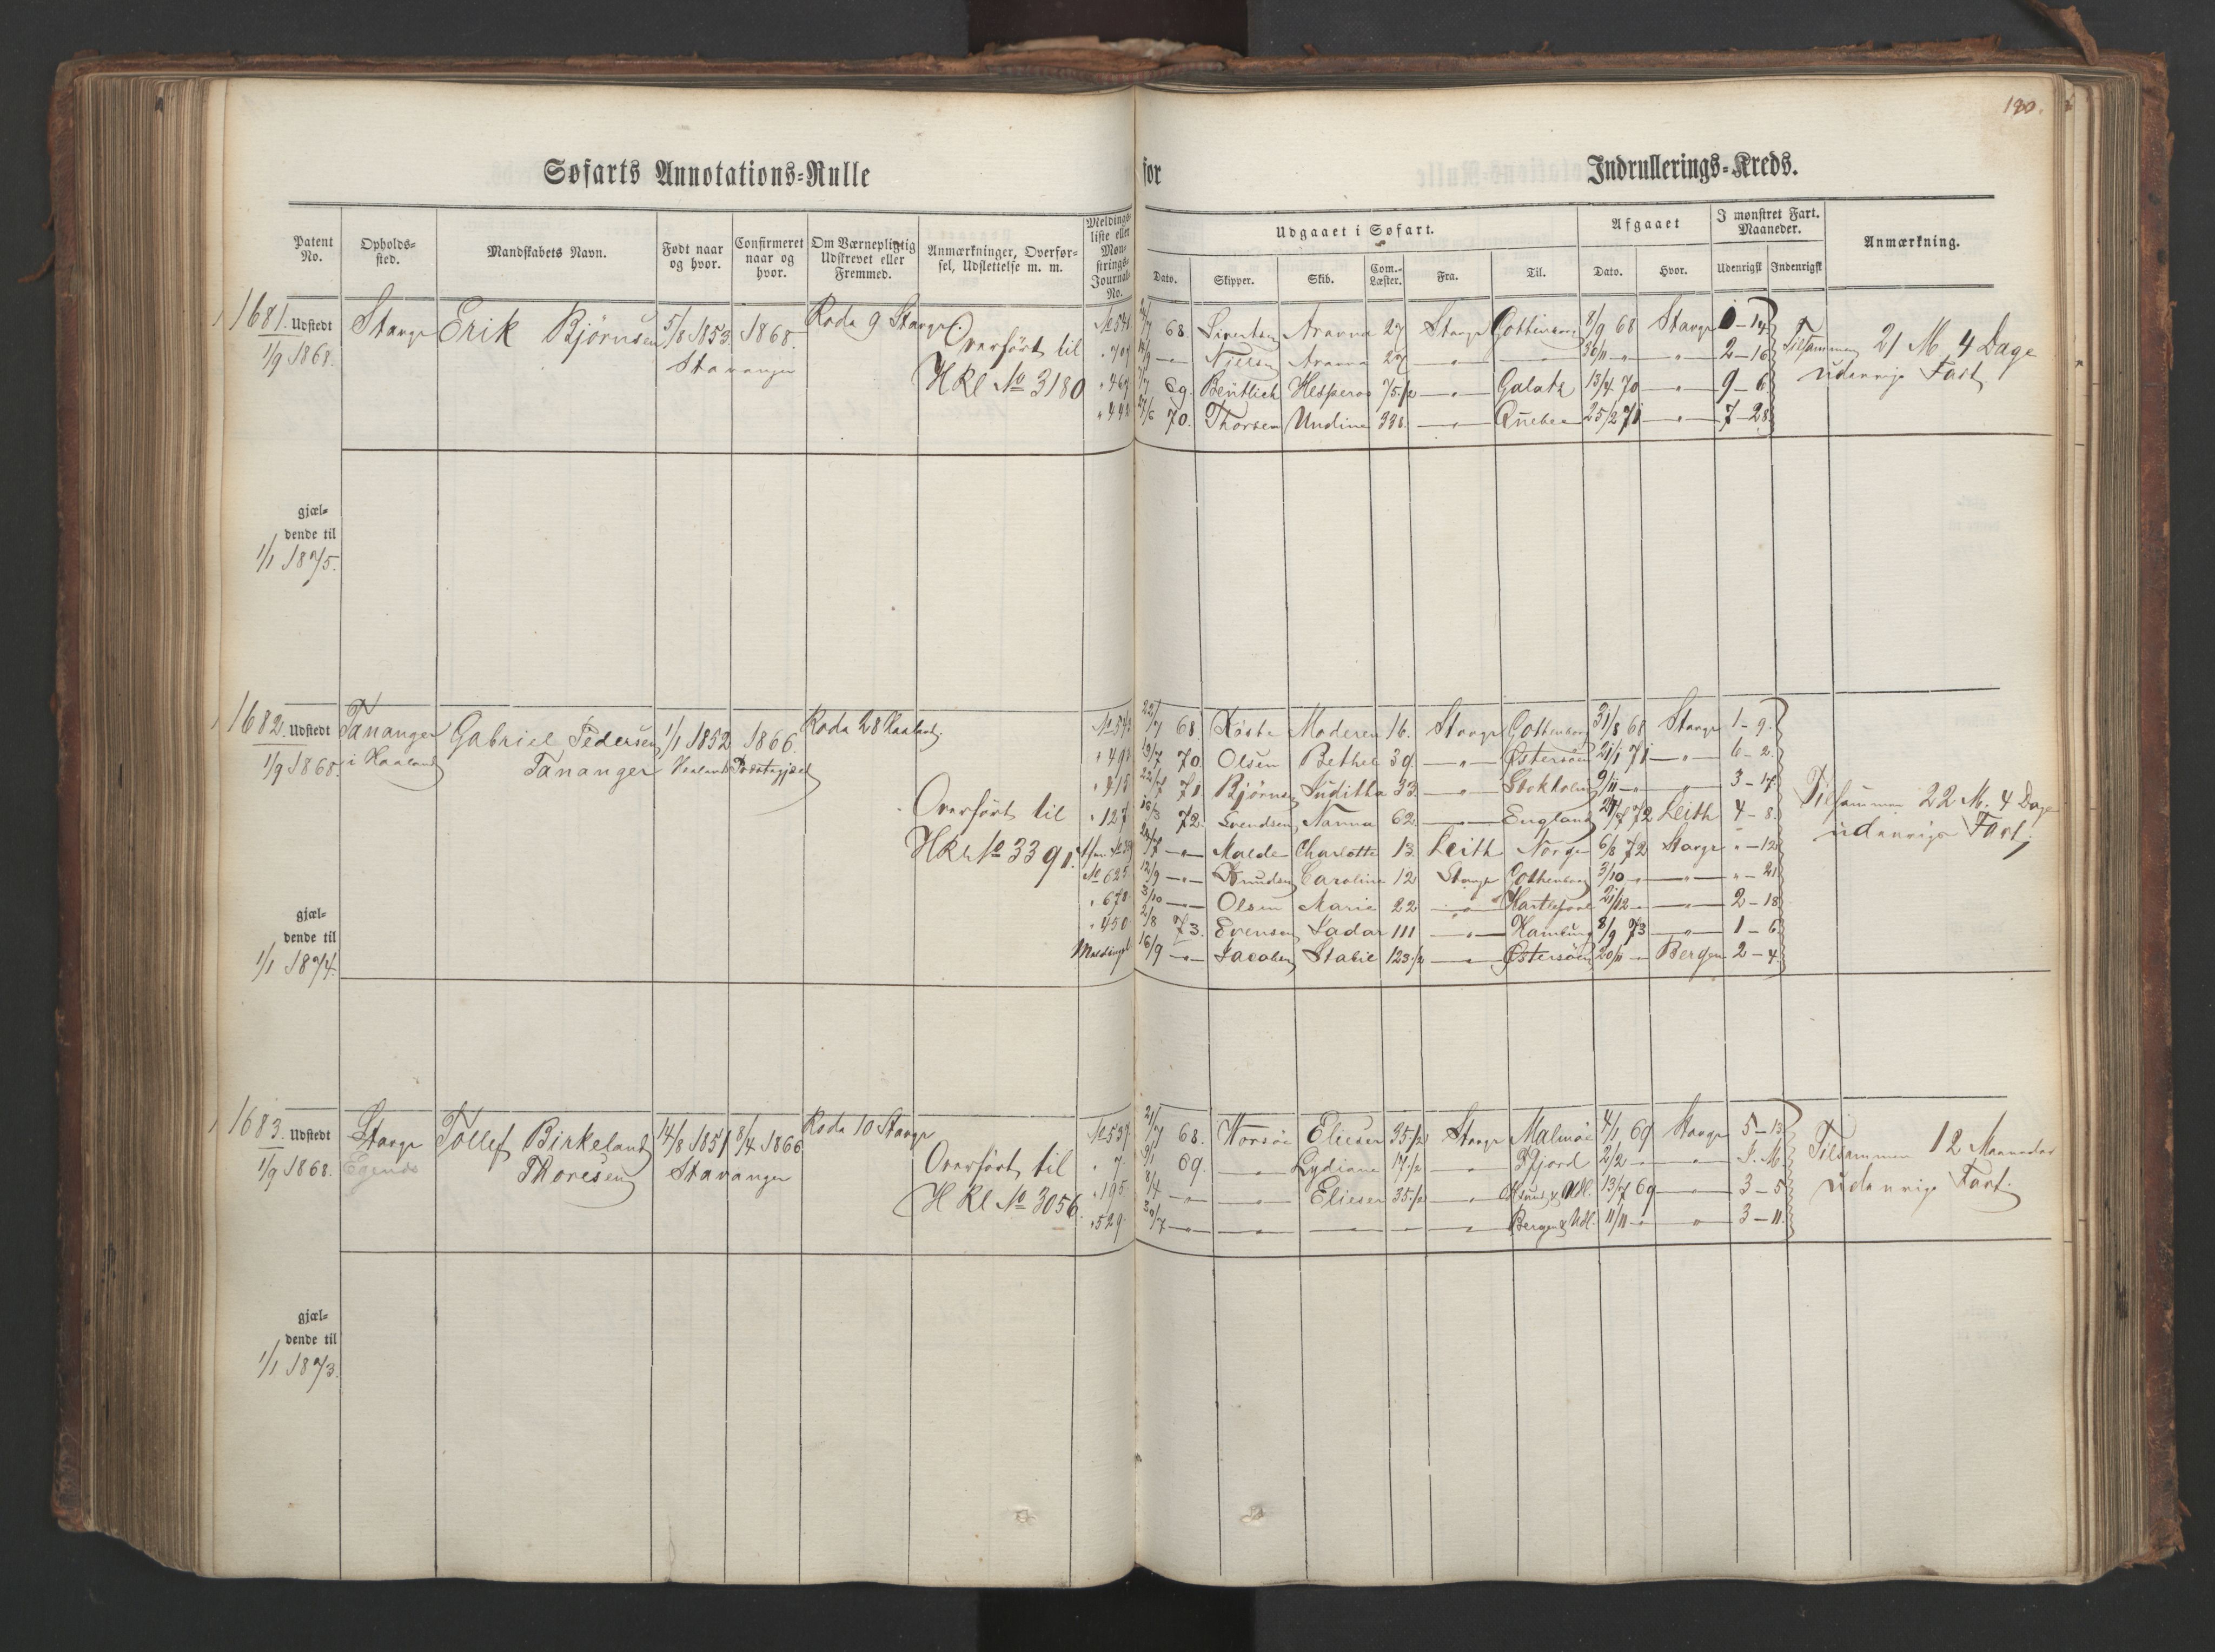 190.
Søfarts Annotations-Rulle for Indrullerings-Kreds.
Patent No. | Opholds-sted. | Mandskabets Navn. | Født naar og hvor. | Confirmeret naar og hvor. | Om Værnepligtig Udskrevet eller Fremmed. | Anmærkninger, Overførsel, Udslettelse m. m. | Meldings-liste eller Mønstrings-Journal-No. | Udgaaet i Søfart. | Afgaaet | I mønstret Fart. Maaneder. | Anmærkning.
Dato. | Skipper. | Skib. | Com.-Læster. | Fra. | Til. | Dato. | Hvor. | Udenrigsk | Indenrigsk
1681. Udstedt 1/9 1868. | Stavgr | Erik Bjørnsen | 5/8 1853 Stavanger | 1868. | Rode 9 Stavgr. | Overført til HKl No 3180
68. | Sivertsen | 27 | Stavgr | 8/9 68 | Stavgr
Nielsen | 27 | 30/11 | 2-16
69. | Bentlich | Hesperos | 75 1/2 | Galatz | 13/4 70 | 9-6
70. | Thorsen | Undine | 338. | Quebec | 25/2 71 | 7-28
Tilsammen 21 M 4 Dage
udenrigs Fart
gjæl-
dende til
1/1 1875.
1682. Udstedt 1/9 1868. | Tananger i Haaland | Gabriel Pedersen Tananger | 1/1 1852 Haalands | 1866. Præstegjæld | Rode 28 Haaland. | Overført til HKl No 3391.
22/7 68. | Moderen | 16. | Stavgr | Gottenborg | 31/8 68 | Stavgr | 1-9.
70 | Olsen | Bethel | 39. | Østersøen | 21/1 71 | 6-2.
71 | Bjørnsen | Juditha | 33. | Stokholm | 9/11 | 3-17
127 | 16/3 72. | Svendsen | Nanna | 62. | England | 72 | Leith | 4-8.
Malde | Charlotte | 13. | Leith | Norge | 6/8 72 | Stavgr | -12
No 625 | 12/9 | Knudsen | Caroline | 12 | Stavgr | Gothenborg | 3/10 | -21
3/10 | Olsen | Marie | 22 | Hartlepool | 21/12 | 2-18
450 | 2/8 73. | Evensen | 111 | Hamburg | 8/9 73 | 1-6
16/9 | Jacobsen | 123 1/2 | Østersøen | 20/11 | Bergen | 2-4
Tilsammen 22 M. 4 Dage
udenrigs Fart;
gjæl-
dende til
1/1 1874.
1683. Udstedt 1/9 1868. | Stavgr Egenæs | Tollef Birkeland Thoresen | 14/8 1851 Stavanger | 8/4 1866 | Rode 10 Stavgr | Overført til HKl No 3056.
No 537 | 21/7 68. | Korsøe | Elieser | 35 1/2 | Stavgr | Malmøe | 4/1 69 | Stavgr | 5-13
7. | 69. | Lydiane | 17 1/2 | 2/2
195 | 8/4 | Elieser | 35 1/2 | 13/7 69 | 3-5
529. | 30/7 | Bergen & Udl. | 11/11 | 3-11.
Tilsammen 12 Maaneder
udenrigs Fart.
gjæl-
dende til
1/1 1873.